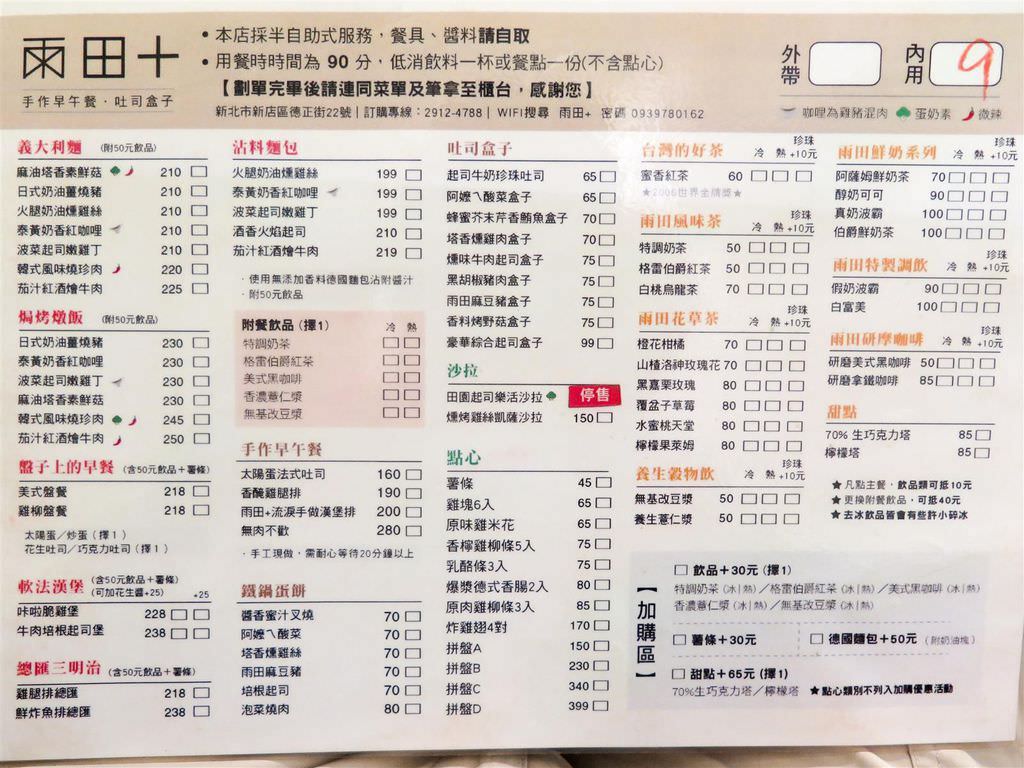 雨田十
手作早午餐・吐司盒子
• 本店採半自助式服務，餐具、醬料請自取
• 用餐時時間為 90 分，低消飲料一杯或餐點一份(不含點心)
【劃單完畢後請連同菜單及筆拿至櫃台，感謝您】
新北市新店區德正街22號 | 訂購專線：2912-4788 | WIFI搜尋 雨田+ 密碼 0939780162
外帶
內用 9
咖哩為雞豬混肉 蛋奶素 微辣
義大利麵 (附50元飲品)
麻油塔香素鮮菇 210
日式奶油薑燒豬 210
火腿奶油燻雞絲 210
泰黃奶香紅咖哩 210
菠菜起司嫩雞丁 210
韓式風味燒珍肉 220
茄汁紅酒燴牛肉 225
焗烤燉飯 (附50元飲品)
日式奶油薑燒豬 230
泰黃奶香紅咖哩 230
菠菜起司嫩雞丁 230
麻油塔香素鮮菇 230
韓式風味燒珍肉 245
茄汁紅酒燴牛肉 250
盤子上的早餐 (含50元飲品＋薯條)
美式盤餐 218
雞柳盤餐 218
太陽蛋／炒蛋 (擇1)
花生吐司／巧克力吐司 (擇1)
軟法漢堡 (含50元飲品＋薯條)
(可加花生醬+25) +25
咔啦脆雞堡 228
牛肉培根起司堡 238
總匯三明治 (含50元飲品＋薯條)
雞腿排總匯 218
鮮炸魚排總匯 238
沾料麵包
火腿奶油燻雞絲 199
泰黃奶香紅咖哩 199
菠菜起司嫩雞丁 199
酒香火焰起司 210
茄汁紅酒燴牛肉 219
・使用無添加香料德國麵包沾附醬汁
・附50元飲品
附餐飲品 (擇1) 冷 熱
特調奶茶
格雷伯爵紅茶
美式黑咖啡
香濃薏仁漿
無基改豆漿
手作早午餐
太陽蛋法式吐司 160
香醃雞腿排 190
雨田+流淚手做漢堡排 200
無肉不歡 280
・手工現做，需耐心等待20分鐘以上
鐵鍋蛋餅
醬香蜜汁叉燒 70
阿嬤ㄟ酸菜 70
塔香燻雞絲 70
雨田麻豆豬 70
培根起司 70
泡菜燒肉 80
吐司盒子
起司牛奶珍珠吐司 65
阿嬤ㄟ酸菜盒子 65
蜂蜜芥末芹香鮪魚盒子 70
塔香燻雞肉盒子 70
燻味牛肉起司盒子 75
黑胡椒豬肉盒子 75
雨田麻豆豬盒子 75
香料烤野菇盒子 75
豪華綜合起司盒子 99
沙拉
田園起司樂活沙拉 停售
燻烤雞絲凱薩沙拉 150
點心
薯條 45
雞塊6入 65
原味雞米花 65
香檸雞柳條5入 75
乳酪條3入 75
爆漿德式香腸2入 80
原肉雞柳條3入 85
炸雞翅4對 170
拼盤A 150
拼盤B 230
拼盤C 340
拼盤D 399
台灣的好茶 冷 熱 珍珠+10元
蜜香紅茶 60
★2006世界金牌獎★
雨田風味茶 冷 熱 珍珠+10元
特調奶茶 50
格雷伯爵紅茶 50
白桃烏龍茶 70
雨田花草茶 冷 熱 珍珠+10元
橙花柑橘 70
山楂洛神玫瑰花 70
黑嘉栗玫瑰 80
覆盆子草莓 80
水蜜桃天堂 80
檸檬果萊姆 80
養生穀物飲 冷 熱 珍珠+10元
無基改豆漿 50
養生薏仁漿 50
雨田鮮奶系列 冷 熱 珍珠+10元
阿薩姆鮮奶茶 70
醇奶可可 90
真奶波霸 100
伯爵鮮奶茶 100
雨田特製調飲 冷 熱 珍珠+10元
假奶波霸 90
白富美 100
雨田研摩咖啡 冷 熱 珍珠+10元
研磨美式黑咖啡 50
研磨拿鐵咖啡 85
甜點
70% 生巧克力塔 85
檸檬塔 85
★凡點主餐，飲品類可抵10元
★更換附餐飲品，可抵40元
★去冰飲品皆會有些許小碎冰
【加購區】
飲品＋30元 (擇1)
特調奶茶 (冰｜熱)／格雷伯爵紅茶 (冰｜熱)／美式黑咖啡 (冰｜熱)
香濃薏仁漿 (冰｜熱)／無基改豆漿 (冰｜熱)
薯條＋30元 德國麵包＋50元 (附奶油塊)
甜點＋65元 (擇1)
70%生巧克力塔／檸檬塔 ★點心類別不列入加購優惠活動